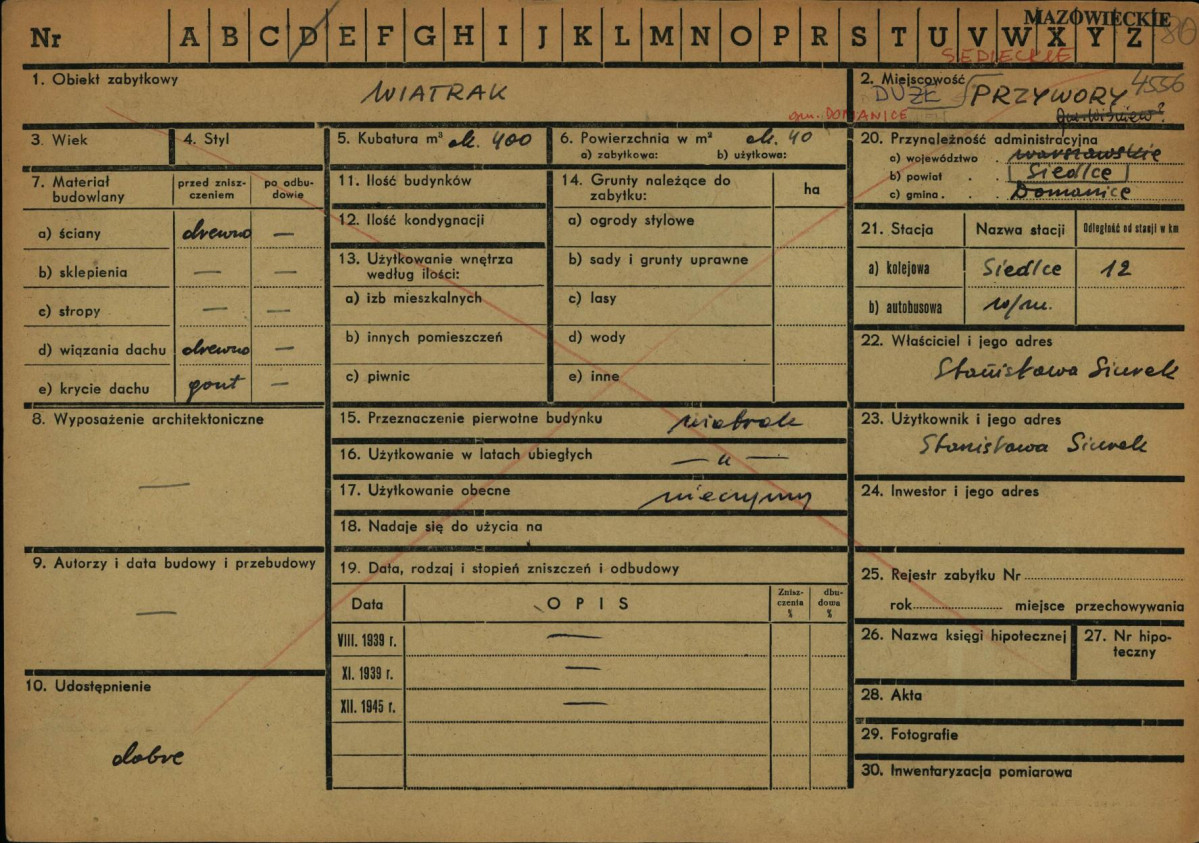 MAZOWIECKIE
Nr A B C D E F G H I J K L M N O P R S T U V W X Y Z 80
SIEDLECKIE
1. Obiekt zabytkowy
WIATRAK
2. Miejscowość
4556
DUŻE PRZYWORY
gm. DOMANICE
gm. Wiśniew?
3. Wiek
4. Styl
5. Kubatura m³ ok. 400
6. Powierzchnia w m² ok. 40
a) zabytkowa: b) użytkowa:
7. Materiał budowlany
przed znisz-czeniem
po odbu-dowie
a) ściany drewno —
b) sklepienia — —
c) stropy — —
d) wiązania dachu drewno —
e) krycie dachu gont —
8. Wyposażenie architektoniczne
—
9. Autorzy i data budowy i przebudowy
—
10. Udostępnienie
dobre
11. Ilość budynków
12. Ilość kondygnacji
13. Użytkowanie wnętrza
według ilości:
a) izb mieszkalnych
b) innych pomieszczeń
c) piwnic
14. Grunty należące do
zabytku:
ha
a) ogrody stylowe
b) sady i grunty uprawne
c) lasy
d) wody
e) inne
15. Przeznaczenie pierwotne budynku wiatrak
16. Użytkowanie w latach ubiegłych — „ —
17. Użytkowanie obecne nieczynny
18. Nadaje się do użycia na
19. Data, rodzaj i stopień zniszczeń i odbudowy
Data OPIS Znisz-czenia % dbu-dowa %
VIII. 1939 r. —
XI. 1939 r. —
XII. 1945 r. —
20. Przynależność administracyjna
a) województwo . warszawskie
b) powiat . . Siedlce
c) gmina . . Domanice
21. Stacja Nazwa stacji Odległość od stacji w km
a) kolejowa Siedlce 12
b) autobusowa w/m.
22. Właściciel i jego adres
Stanisława Siurek
23. Użytkownik i jego adres
Stanisława Siurek
24. Inwestor i jego adres
25. Rejestr zabytku Nr
rok miejsce przechowywania
26. Nazwa księgi hipotecznej
27. Nr hipo-
teczny
28. Akta
29. Fotografie
30. Inwentaryzacja pomiarowa